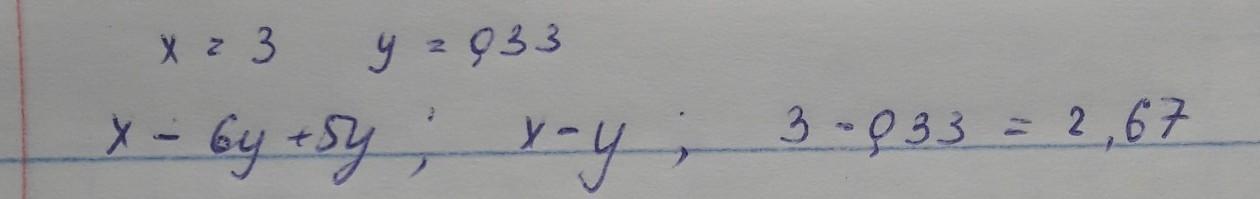 x = 3 y = 0,33
x - 6y + 5y ; x - y ; 3 - 0,33 = 2,67